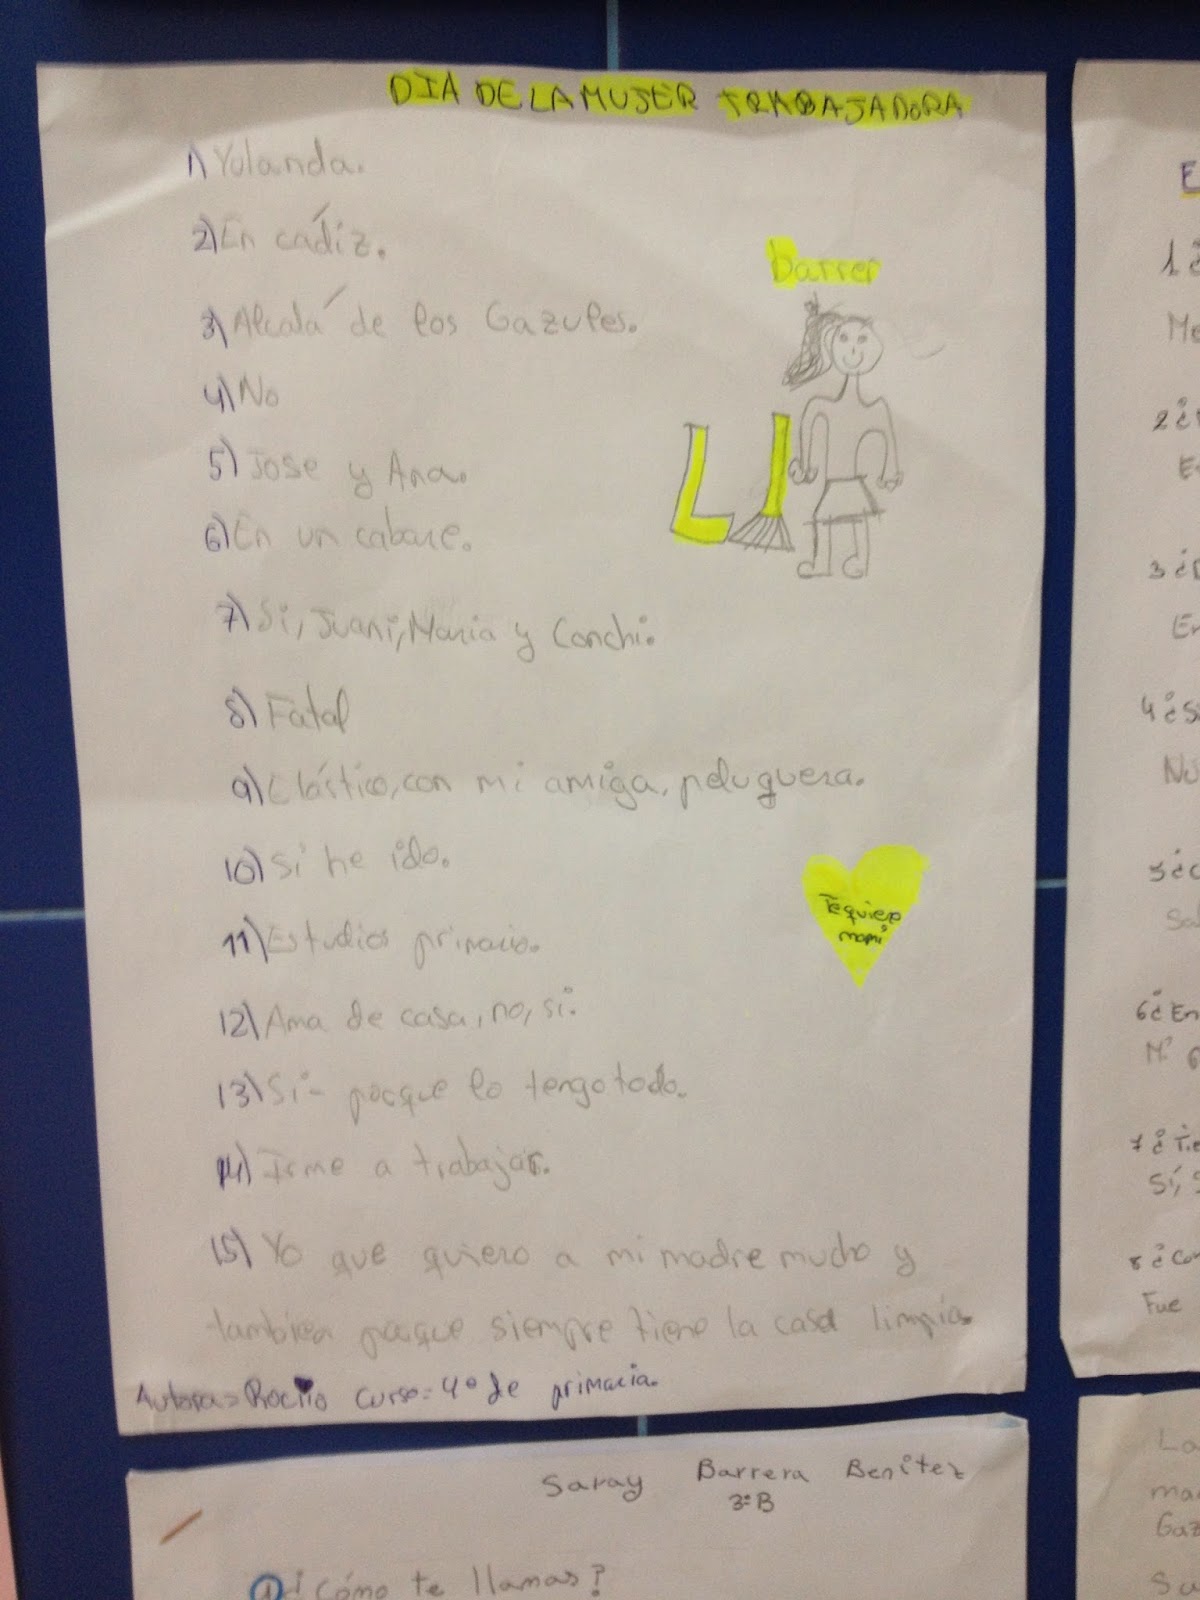 DIA DE LA MUJER TRABAJADORA
1) Yolanda.
2) En cádiz.
barrer
3) Alcalá de los Gazules.
4) No
5) Jose y Ana.
6) En un
7) Si, Juani, Maria y Conchi.
8) Fatal
9) Elástico, con mi amiga, peluquera.
10) Si he ido.
11) Estudios primario.
Te quiero
mami
12) Ama de casa, no, si.
13) Si- porque lo tengo todo.
14) Irme a trabajar.
15) Yo que quiero a mi madre mucho y
tambien porque siempre tiene la casa limpia.
Autora= Rocio curso= 4º de primaria.
Saray Barrera Benitez
3ºB
1 ¿Cómo te llamas?
E
1 ¿
Me
2 ¿
E
3 ¿
En
4 ¿Si
No
5 ¿C
Sa
6 ¿En
Mi
7 ¿Tie
Sí, S
8 ¿Con
Fue
La
ma
Gaz
Su